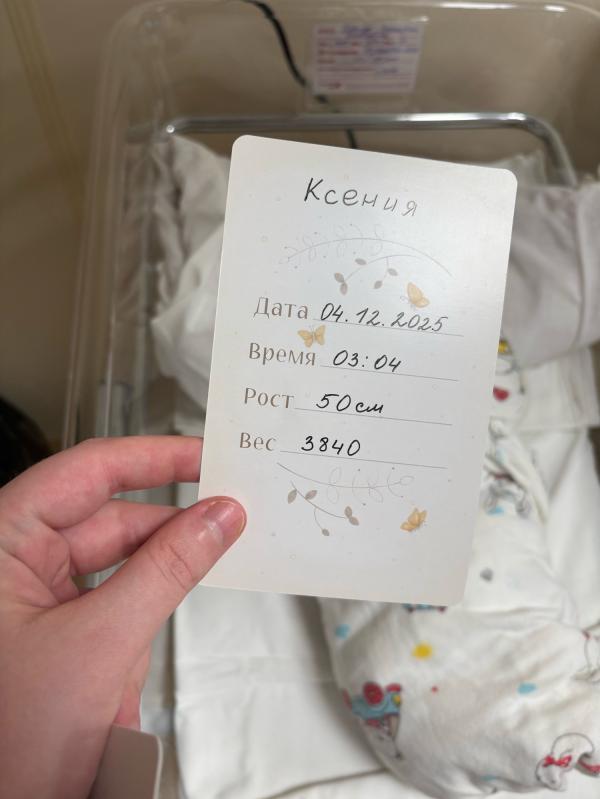 Ксения
Дата 04.12.2025
Время 03:04
Рост 50 см
Вес 3840